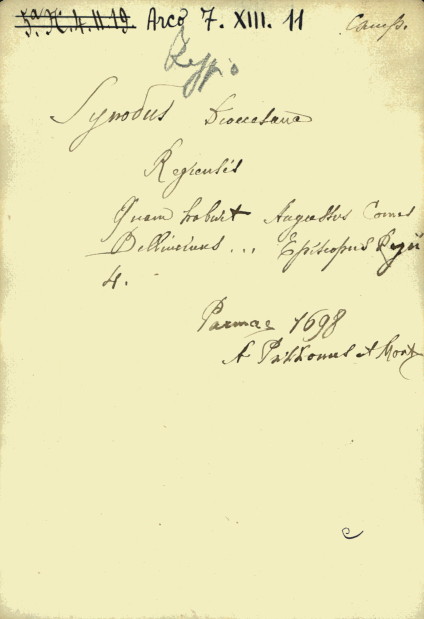 5a. K. 4. II. 19 Arco 7. XIII. 11 Camp.
Reggio
Synodus Diocesana
Regiensis
Quam habuit Augustus Comes
Bellincinus ... Episcopus Regii
4.
Parmae 1698
A Pazzonus et Mont